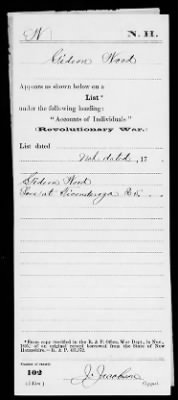 N. H.
Gideon Wood
Appears as shown below on a
List*
under the following heading:
"Accounts of Individuals"
(Revolutionary War.)
List dated
Not dated, 17
Gideon Wood
Loss at Ticonderoga
*From copy (certified in the R. & P. Office, War Dept., in Nov.,
of an original record borrowed from the State of New
Hampshire.—R. & P.
Number of record:
102
J. Jacobson
Copyist.